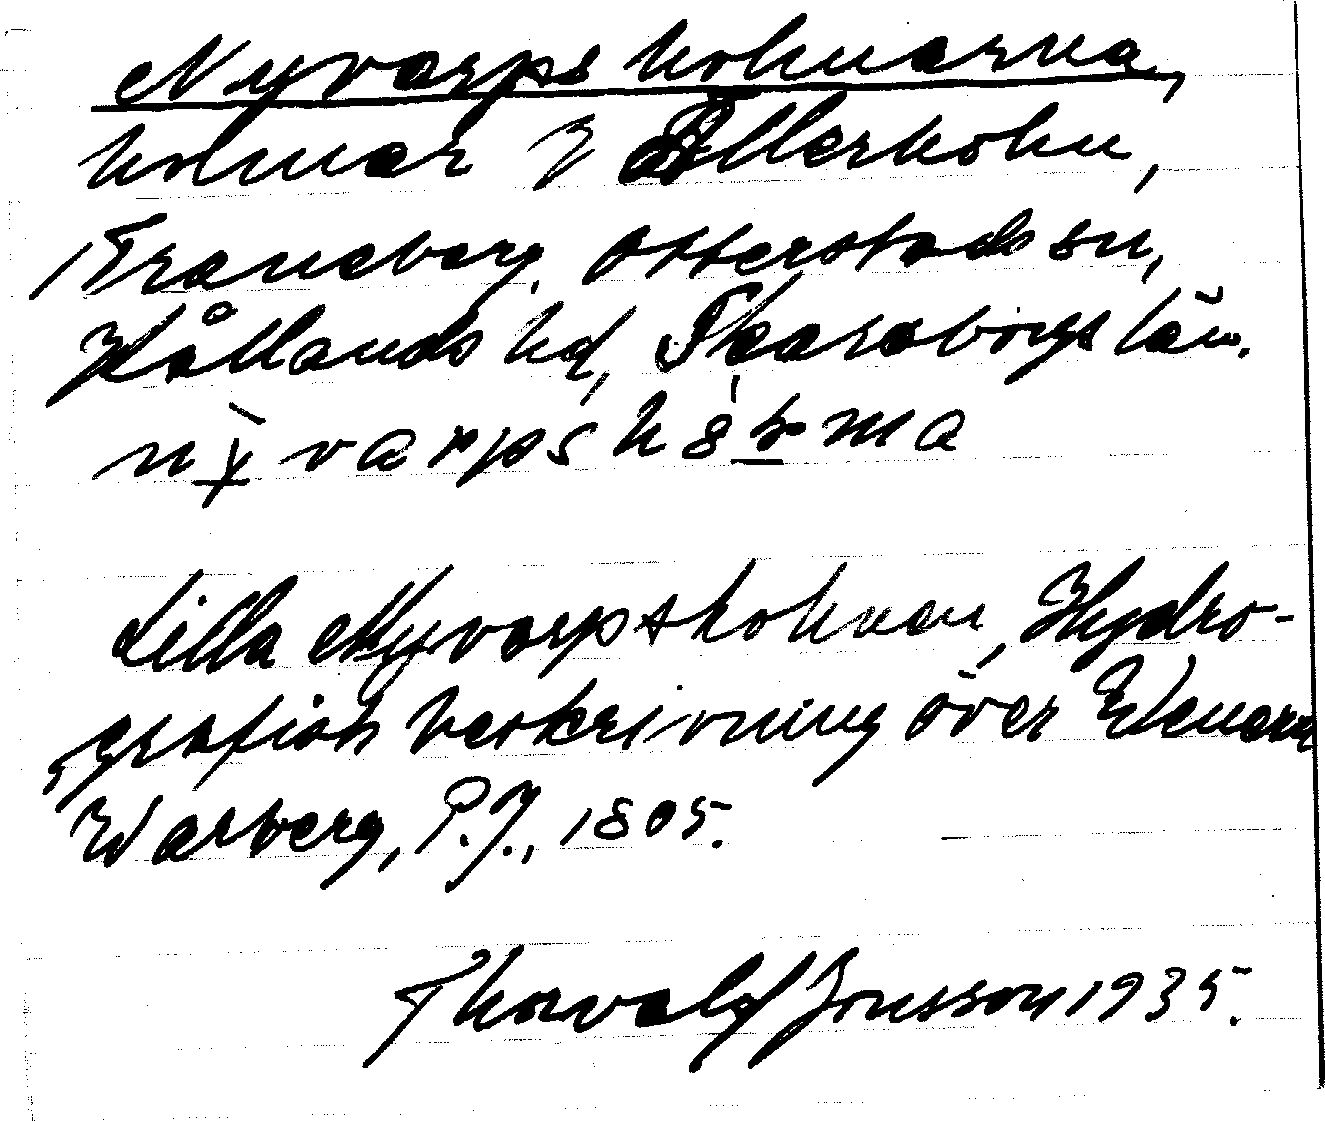 Nyvarpsholmarna,
holmar I Ållerholm,
Traneberg. Otterstads sn,
Kållands hd, Skaraborgs län.
Lilla Nyvarpsholmen, Hydro-
grafisk beskrivning över Wenern
Warberg, P.J., 1805.
Thorvald Jonsson 1935.